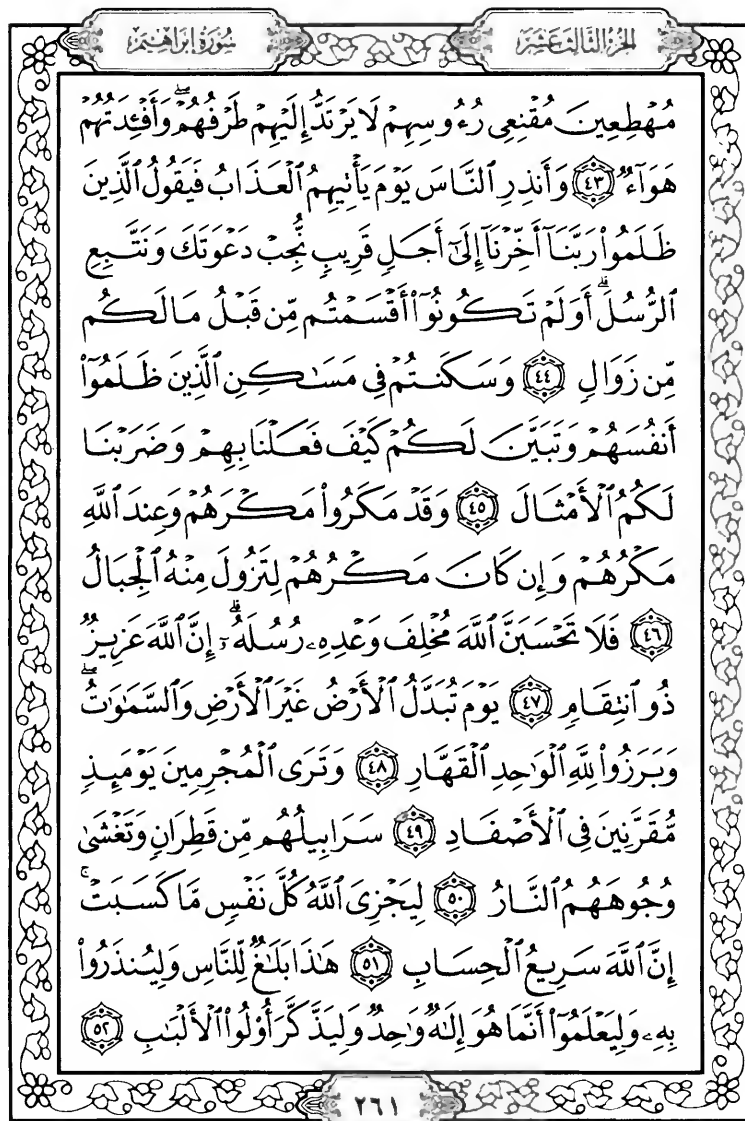 سُورَةُ إِبْرَاهِيمَ
الجُزْءُ الثَّالِثَ عَشَرَ
مُهْطِعِينَ مُقْنِعِى رُءُوسِهِمْ لَا يَرْتَدُّ إِلَيْهِمْ طَرْفُهُمْ ۖ وَأَفْـِٔدَتُهُمْ
هَوَآءٌ ٤٣ وَأَنذِرِ ٱلنَّاسَ يَوْمَ يَأْتِيهِمُ ٱلْعَذَابُ فَيَقُولُ ٱلَّذِينَ
ظَلَمُوا۟ رَبَّنَآ أَخِّرْنَآ إِلَىٰٓ أَجَلٍ قَرِيبٍ نُّجِبْ دَعْوَتَكَ وَنَتَّبِعِ
ٱلرُّسُلَ ۗ أَوَلَمْ تَكُونُوٓا۟ أَقْسَمْتُم مِّن قَبْلُ مَا لَكُم
مِّن زَوَالٍ ٤٤ وَسَكَنتُمْ فِى مَسَٰكِنِ ٱلَّذِينَ ظَلَمُوٓا۟
أَنفُسَهُمْ وَتَبَيَّنَ لَكُمْ كَيْفَ فَعَلْنَا بِهِمْ وَضَرَبْنَا
لَكُمُ ٱلْأَمْثَالَ ٤٥ وَقَدْ مَكَرُوا۟ مَكْرَهُمْ وَعِندَ ٱللَّهِ
مَكْرُهُمْ وَإِن كَانَ مَكْرُهُمْ لِتَزُولَ مِنْهُ ٱلْجِبَالُ
٤٦ فَلَا تَحْسَبَنَّ ٱللَّهَ مُخْلِفَ وَعْدِهِۦ رُسُلَهُۥٓ ۗ إِنَّ ٱللَّهَ عَزِيزٌ
ذُو ٱنتِقَامٍ ٤٧ يَوْمَ تُبَدَّلُ ٱلْأَرْضُ غَيْرَ ٱلْأَرْضِ وَٱلسَّمَٰوَٰتُ ۖ
وَبَرَزُوا۟ لِلَّهِ ٱلْوَٰحِدِ ٱلْقَهَّارِ ٤٨ وَتَرَى ٱلْمُجْرِمِينَ يَوْمَئِذٍ
مُّقَرَّنِينَ فِى ٱلْأَصْفَادِ ٤٩ سَرَابِيلُهُم مِّن قَطِرَانٍ وَتَغْشَىٰ
وُجُوهَهُمُ ٱلنَّارُ ٥٠ لِيَجْزِىَ ٱللَّهُ كُلَّ نَفْسٍ مَّا كَسَبَتْ ۚ
إِنَّ ٱللَّهَ سَرِيعُ ٱلْحِسَابِ ٥١ هَٰذَا بَلَٰغٌ لِّلنَّاسِ وَلِيُنذَرُوا۟
بِهِۦ وَلِيَعْلَمُوٓا۟ أَنَّمَا هُوَ إِلَٰهٌ وَٰحِدٌ وَلِيَذَّكَّرَ أُو۟لُوا۟ ٱلْأَلْبَٰبِ ٥٢
٢٦١